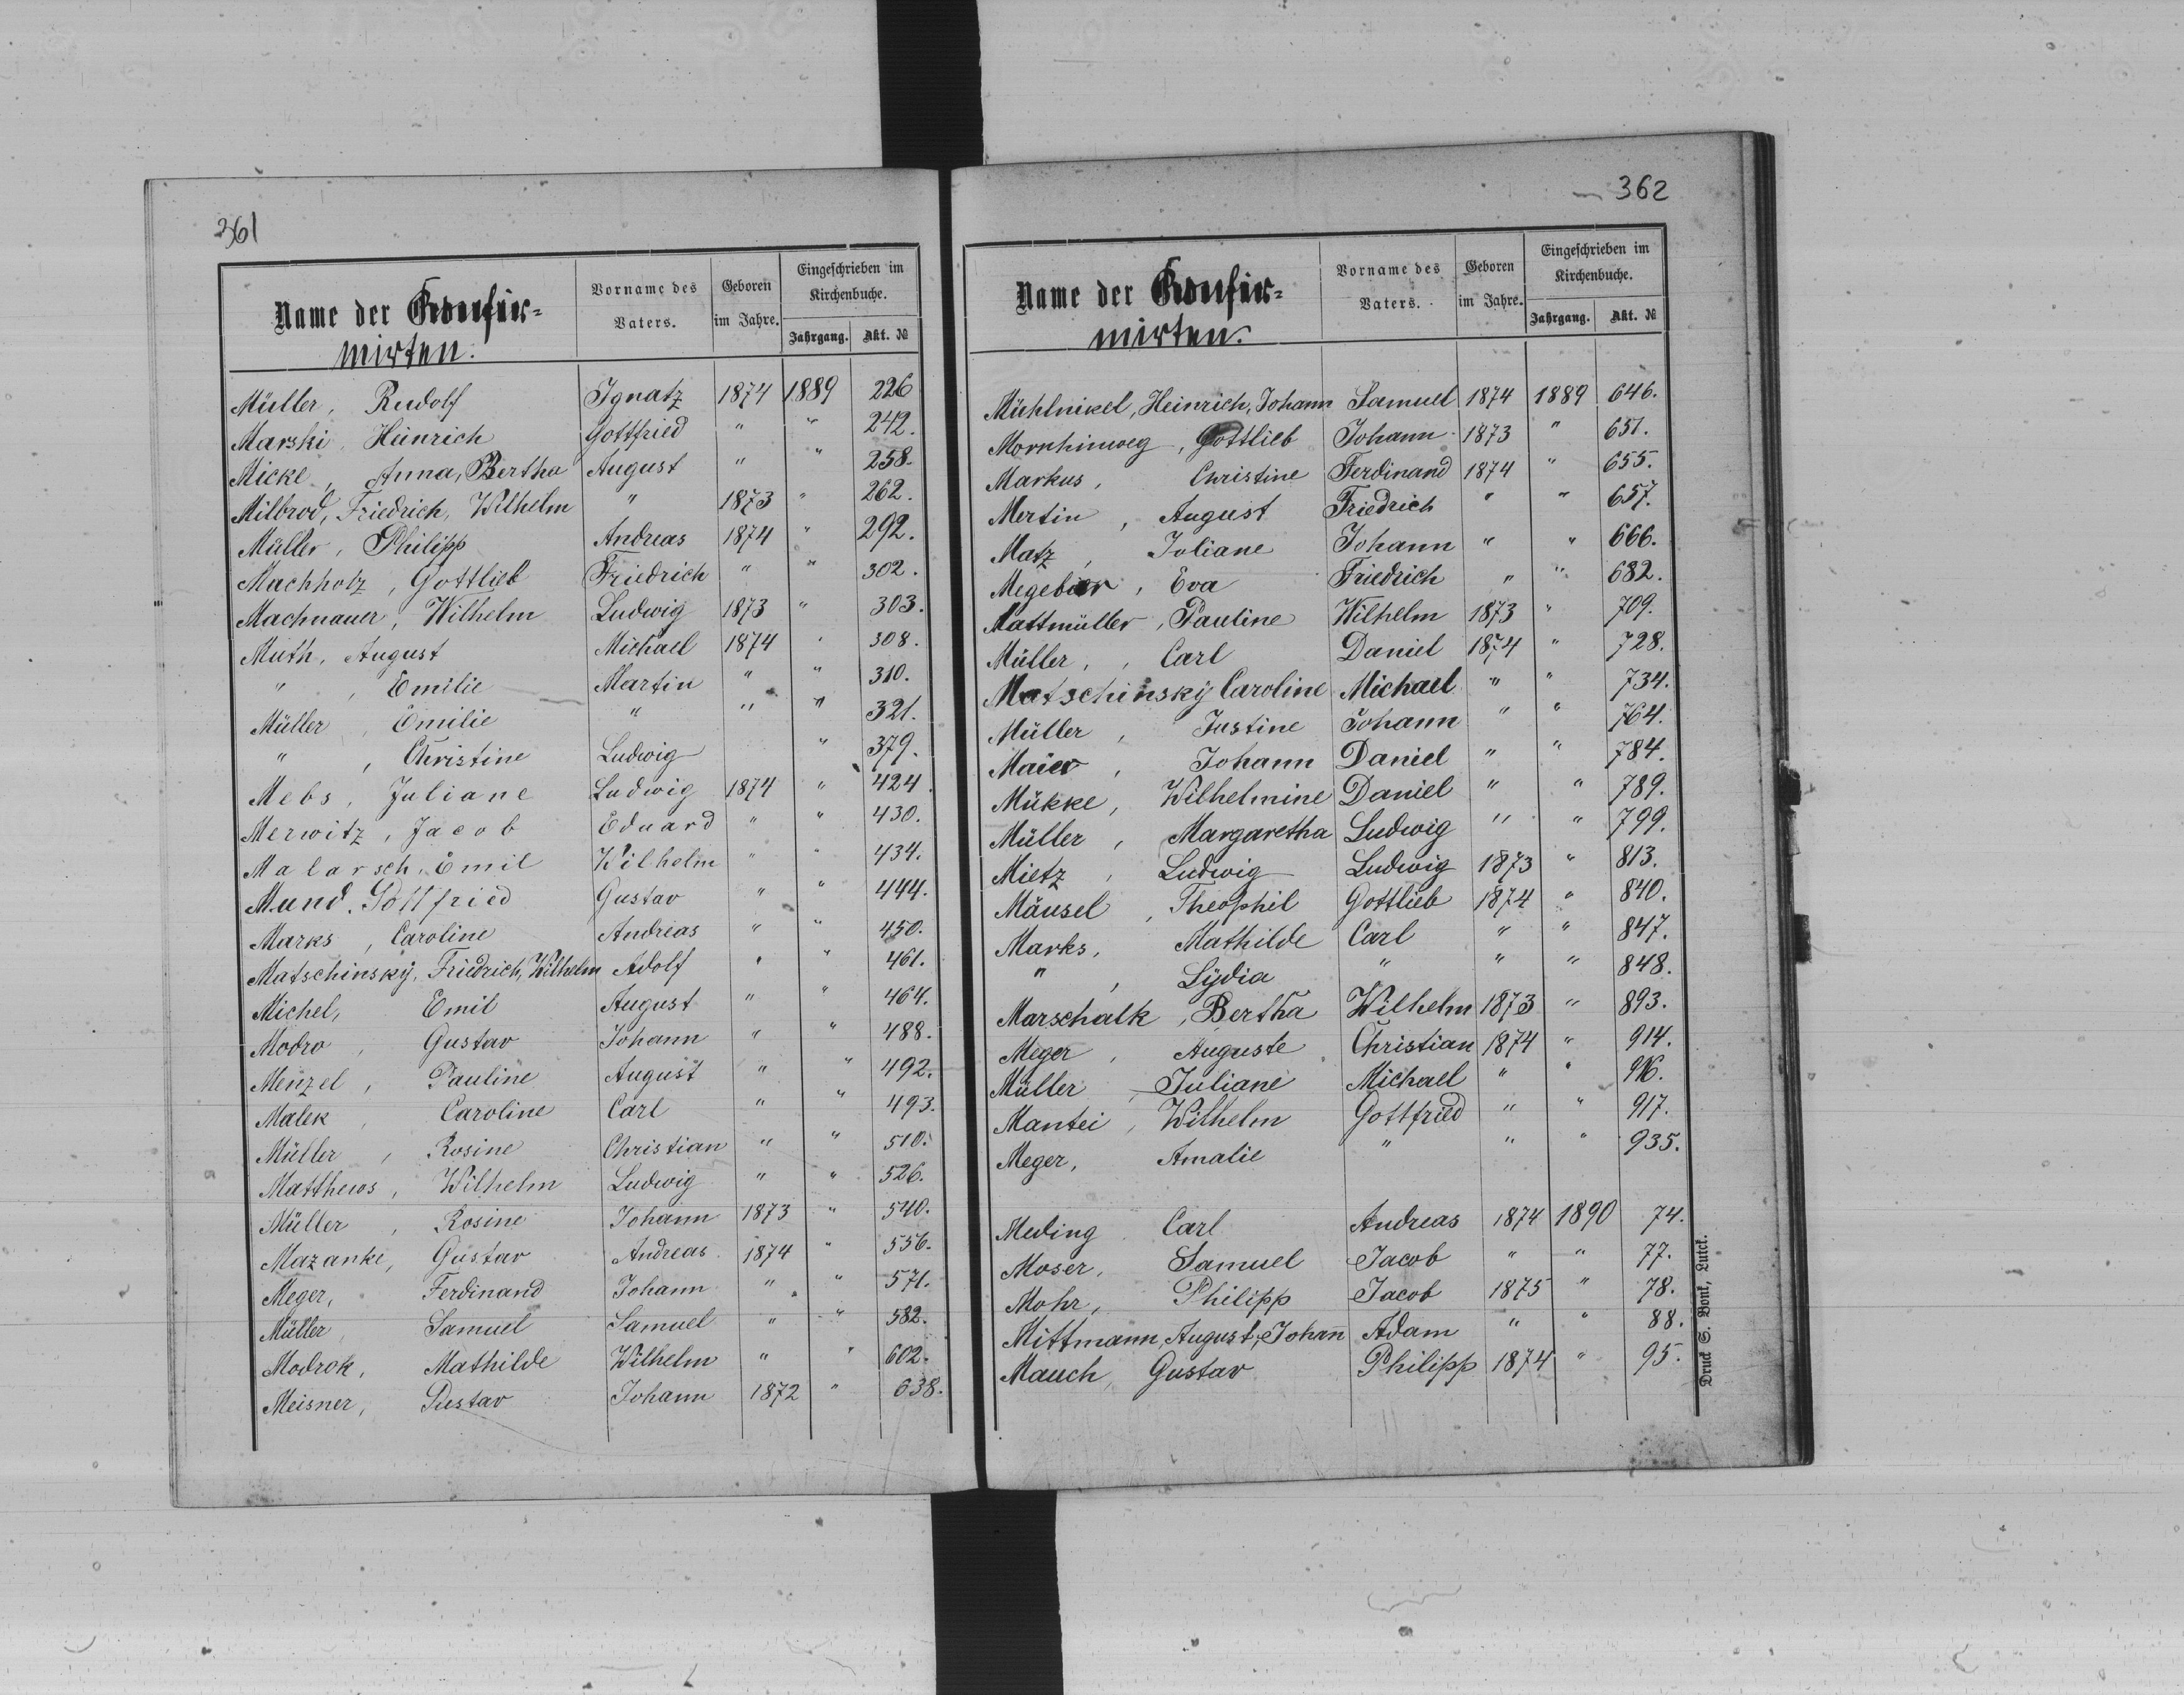 361
Name der Konfir=
mirten.
Vorname des Vaters.
Geboren im Jahre.
Eingeschrieben im Kirchenbuche.
Jahrgang. Akt. №
Müller, Rudolf Ignatz 1874 1889 226
Marski, Heinrich Gottfried " " 242.
Micke, Anna, Bertha August " " 258.
Milbrod, Friedrich, Wilhelm " 1873 " 262.
Müller, Philipp Andreas 1874 " 292.
Machholz, Gottlieb Friedrich " " 302.
Machnauer, Wilhelm Ludwig 1873 " 303.
Muth, August Michael 1874 " 308.
" , Emilie Martin " " 310.
Müller, Emilie " " " 321.
" , Christine Ludwig " 379.
Mebs, Juliane Ludwig 1874 " 424
Merwitz, Jacob Eduard " " 430.
Malarsch, Emil Wilhelm " " 434.
Mund, Gottfried Gustav " " 444.
Marks, Caroline Andreas " " 450.
Matschinskÿ, Friedrich, Wilhelm Adolf " " 461.
Michel, Emil August " " 464.
Modro, Gustav Johann " " 488.
Menzel, Pauline August " " 492.
Malek, Caroline Carl " " 493.
Müller, Rosine Christian " " 510.
Matthews, Wilhelm Ludwig " " 526.
Müller, Rosine Johann 1873 " 540.
Mazanke, Gustav Andreas 1874 " 556.
Meger, Ferdinand Johann " " 571.
Müller, Samuel Samuel " " 582.
Modrok, Mathilde Wilhelm " " 602.
Meisner, Gustav Johann 1872 " 638.
362
Name der Konfir=
mirten.
Vorname des Vaters.
Geboren im Jahre.
Eingeschrieben im Kirchenbuche.
Jahrgang. Akt. №
Mühlnikel, Heinrich, Johann Samuel 1874 1889 646.
Mornhinweg, Gottlieb Johann 1873 " 651.
Markus, Christine Ferdinand 1874 " 655.
Mertin, August Friedrich " " 657.
Matz, Juliane Johann " " 666.
Megebier, Eva Friedrich " " 682.
Mattmüller, Pauline Wilhelm 1873 " 709.
Müller, Carl Daniel 1874 " 728.
Matschinskÿ Caroline Michael " " 734.
Müller, Justine Johann " " 764.
Maier, Johann Daniel " " 784.
Mükke, Wilhelmine Daniel " " 789.
Müller, Margaretha Ludwig " " 799.
Mietz, Ludwig Ludwig 1873 " 813.
Mäusel, Theophil Gottlieb 1874 " 840.
Marks, Mathilde Carl " " 847.
" , Lÿdia " " " 848.
Marschalk, Bertha Wilhelm 1873 " 893.
Meger, Auguste Christian 1874 " 914.
Müller, Juliane Michael " " 916.
Mantei, Wilhelm Gottfried " " 917.
Meger, Amalie " " " 935.
Meding Carl Andreas 1874 1890 74.
Moser, Samuel Jacob " " 77.
Mohr, Philipp Jacob 1875 " 78.
Mittmann, August, Johann Adam " " 88.
Mauch, Gustav Philipp 1874 " 95.
Druck S. Bonk, Lutck.